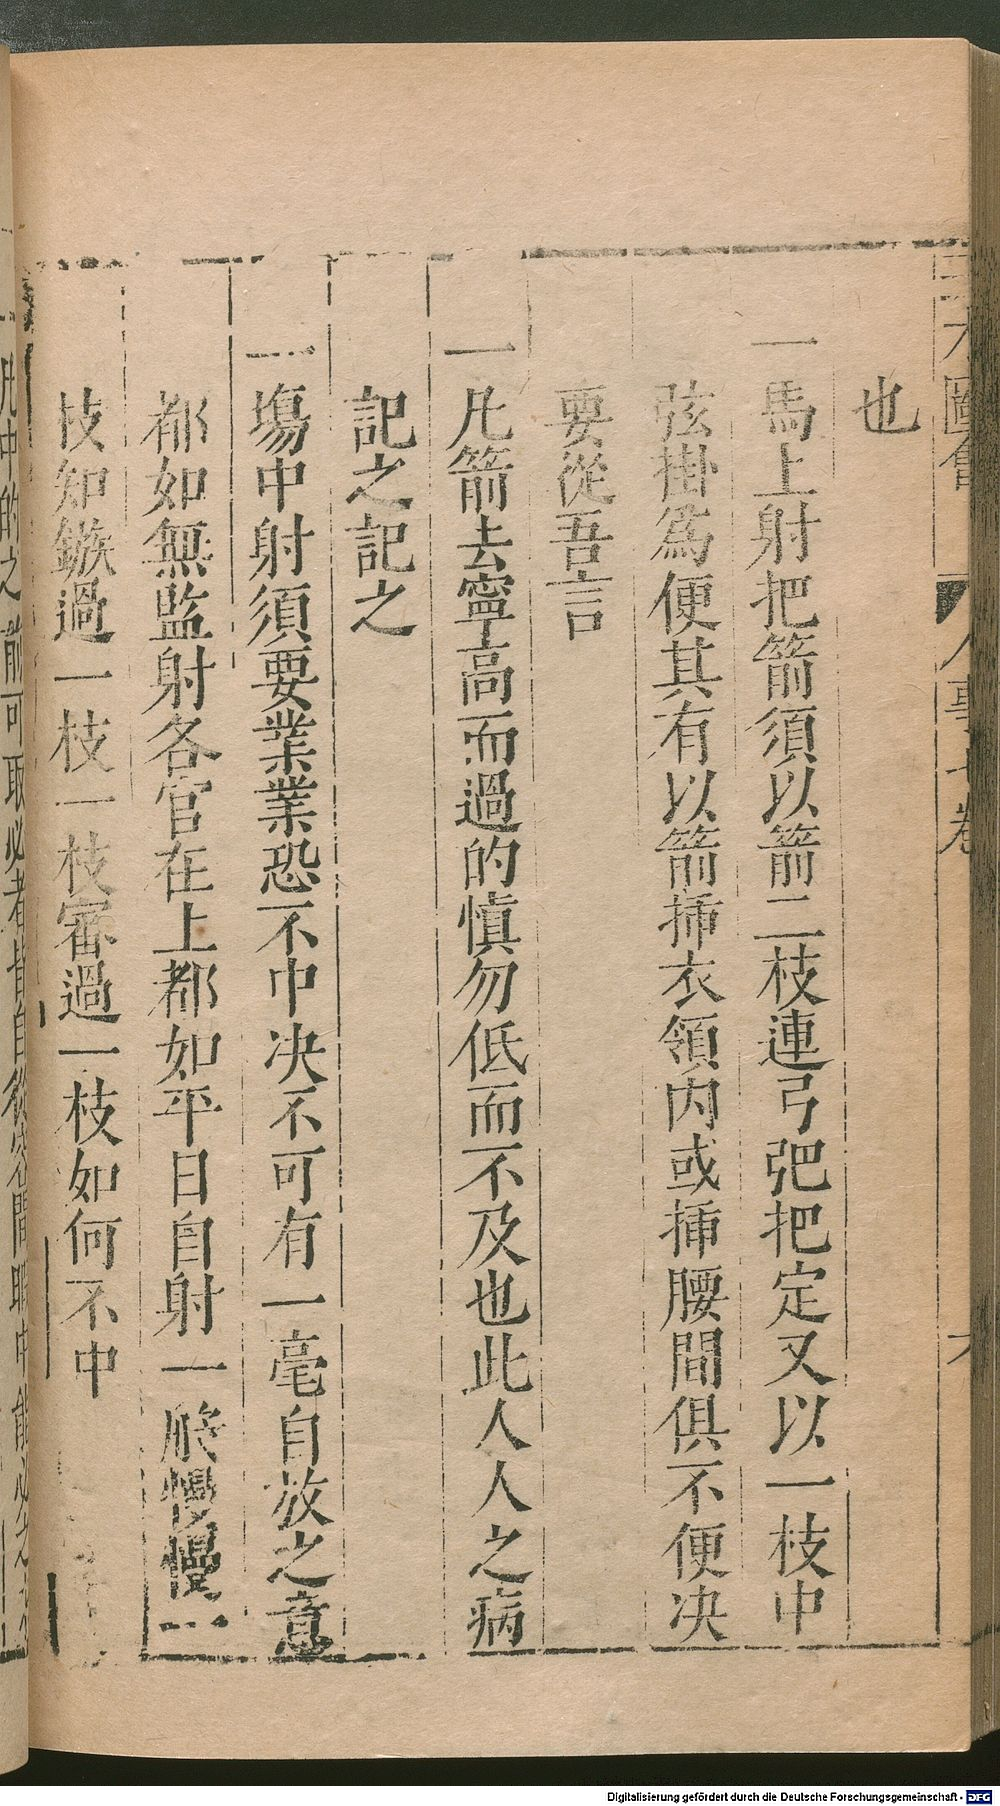 也
一馬上射把箭須以箭二枝連弓弝把定又以一枝中
弦掛爲便其有以箭揷衣領内或揷腰間俱不便决
要從吾言
一凢箭去寧高而過的慎勿低而不及也此人人之病
記之記之
一塲中射須要業業恐不中决不可有一毫自放之意
都如無監射各官在上都如平日自射一般慢慢一
枝知鏃過一枝一枝審過一枝如何不中
圖會 人事七卷
一凢中的之前可取必者皆自從容閒暇中能必之
Digitalisierung gefördert durch die Deutsche Forschungsgemeinschaft - DFG